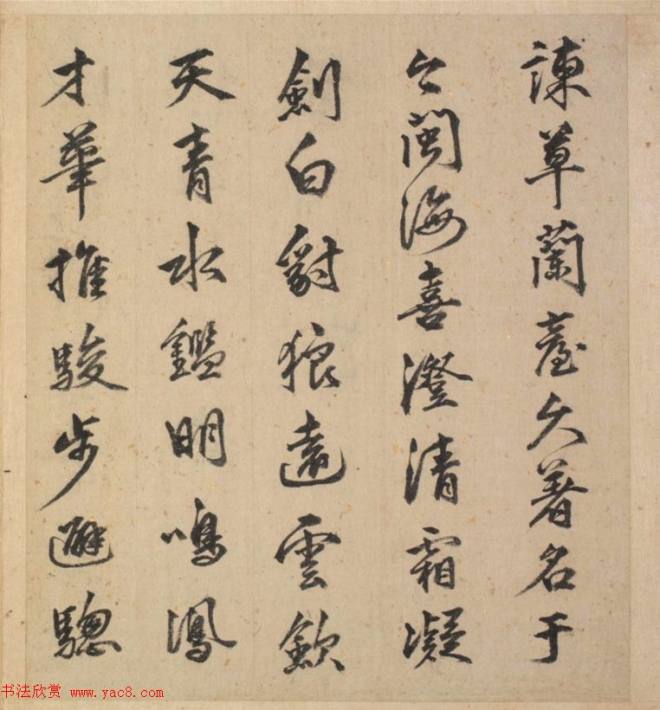 諫草蘭臺久著名于
今閩海喜澄清霜凝
劍白豺狼遠雲歛
天青水鑑明鳴鳳
才華推駿步避驄
书法欣赏 www.yac8.com